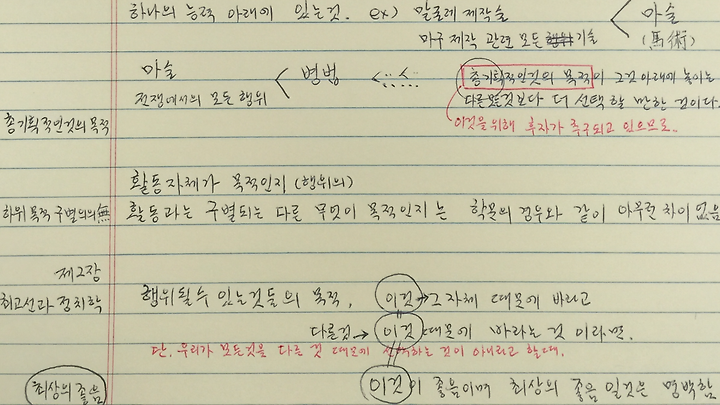 하나의 능력 아래에 있는것. ex) 말굴레 제작술 < 마술
마구 제작 관련 모든 기술 (馬術)
마술 < 병법 <···
전쟁에서의 모든 행위
총기획적인것의 목적이 그것 아래에 놓이는
다른 모든것보다 더 선택할 만한 것이다.
총기획적인것의 목적
이것을 위해 후자가 추구되고 있으므로..
활동자체가 목적인지 (행위의)
하위 목적 구별의의 無
활동과는 구별되는 다른 무엇이 목적인지는 학문의 경우와 같이 아무런 차이 없음
제2장
최고선과 정치학
행위될수 있는것들의 목적, 이것→그 자체 때문에 바라고
다른것→이것 때문에 바라는 것 이라면.
단, 우리가 모든것을 다른 것 때문에 선택하는 것이 아니라고 할때.
최상의 좋음
이것이 좋음이며 최상의 좋음 일것은 명백함